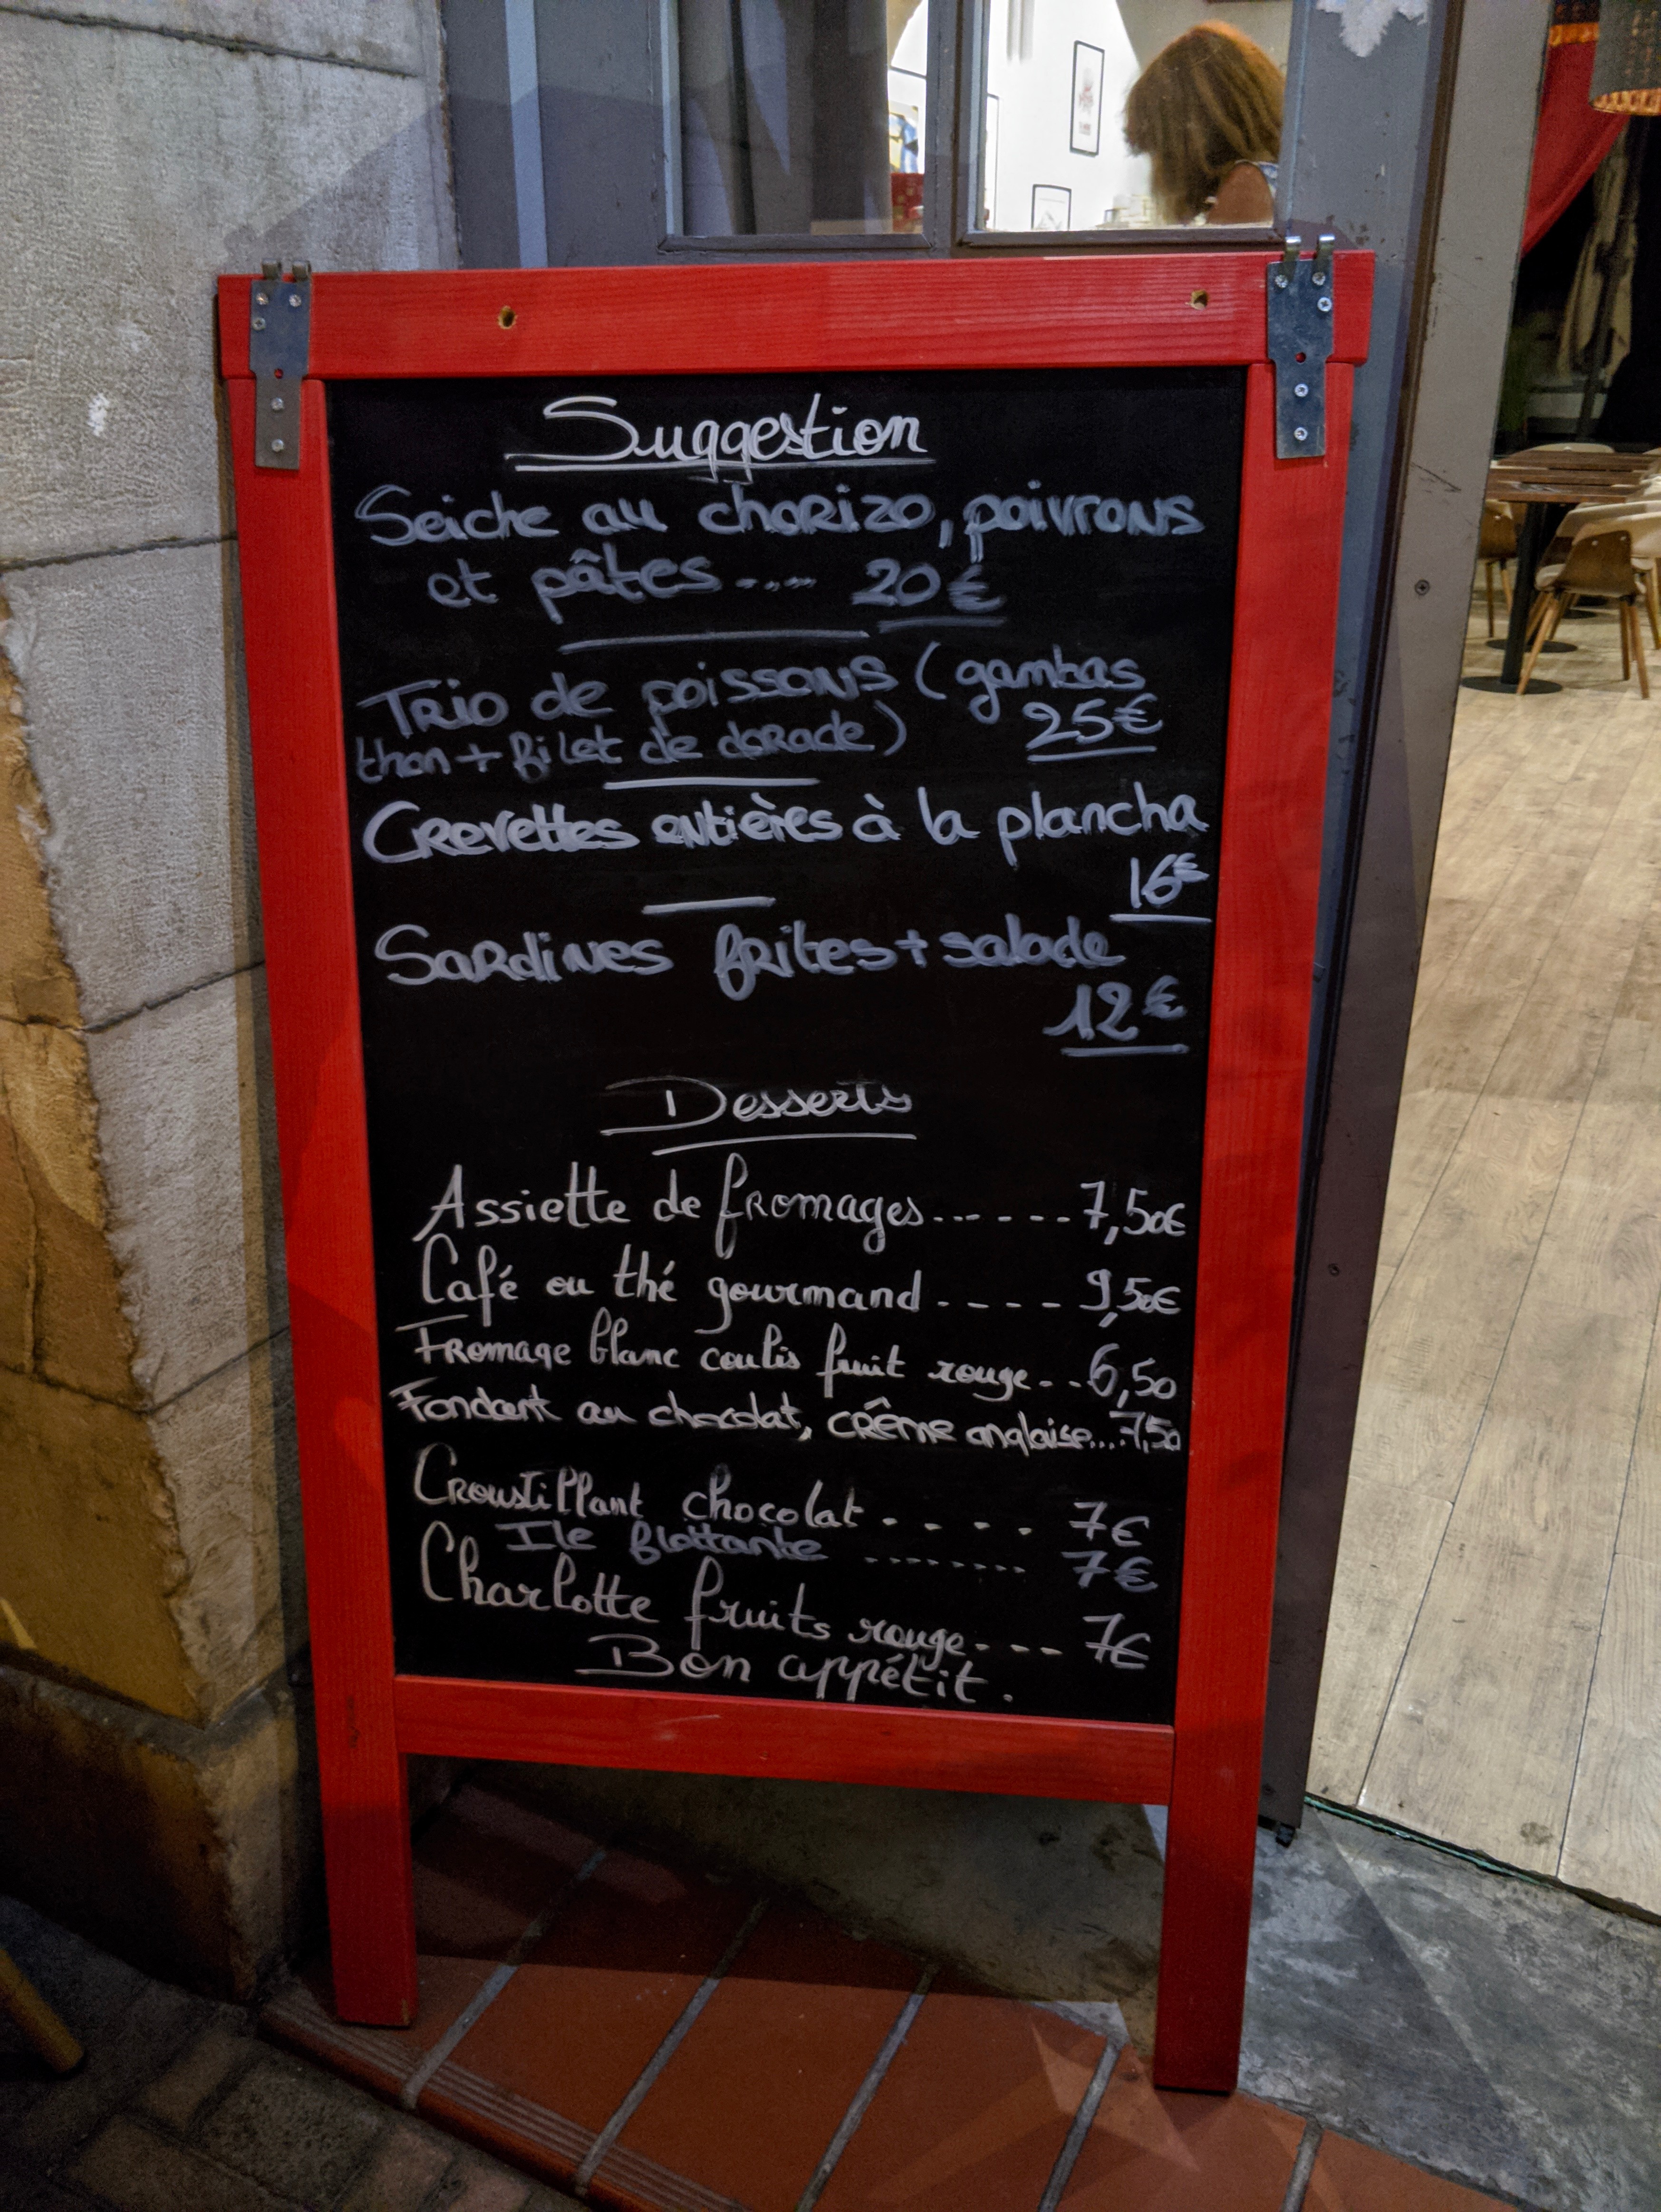 Suggestion
Seiche au chorizo, poivrons
et pâtes ....... 20 €
Trio de poissons (gambas
thon + filet de dorade) 25€
Crevettes entières à la plancha
16€
Sardines frites + salade
12€
Desserts
Assiette de fromages ...----7,50€
Café ou thé gourmand .---- 9,50€
Fromage blanc coulis fruit rouge...6,50
Fondant au chocolat, crême anglaise....7,50
Croustillant chocolat . . . . 7€
Ile flottante ......... 7€
Charlotte fruits rouge---- 7€
Bon appétit.